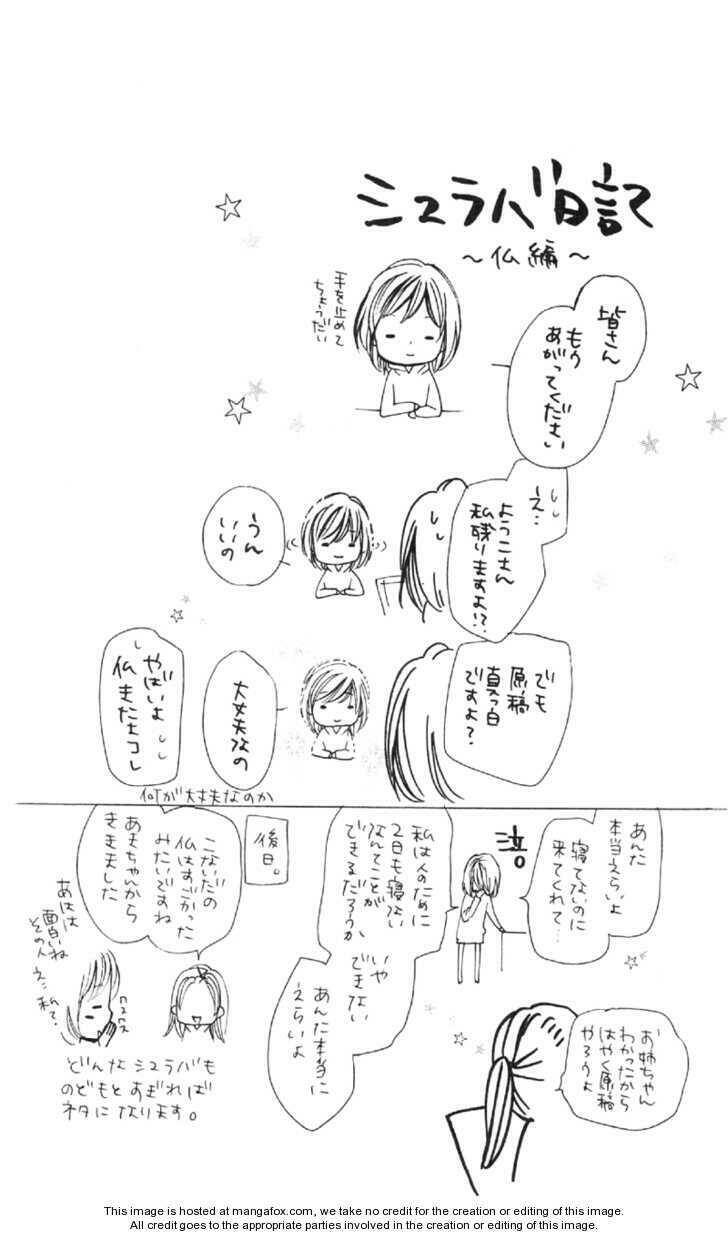 シュラバ日記
～仏編～
皆さん
もう
あがってください
手を止めて
ちょうだい
え…
ようこさん
私残りますよ!?
うん
いいの
でも
原稿
真っ白
ですよ?
大丈夫なの
やばいよ
仏きたよコレ
何が大丈夫なのか
あんた
本当えらいよ
寝てないのに
来てくれて…
泣。
お姉ちゃん
わかったから
はやく原稿
やろうよ
私は人のために
2日も寝ない
なんてことが
できるだろうか
いや
できない
あんた本当に
えらいよ
後日。
こないだの
仏はすごかった
みたいですね
あきちゃんから
ききました
あはは
面白いね
その人
え…私?
どんなシュラバも
のどもとすぎれば
ネタになります。
This image is hosted at mangafox.com, we take no credit for the creation or editing of this image.
All credit goes to the appropriate parties involved in the creation or editing of this image.